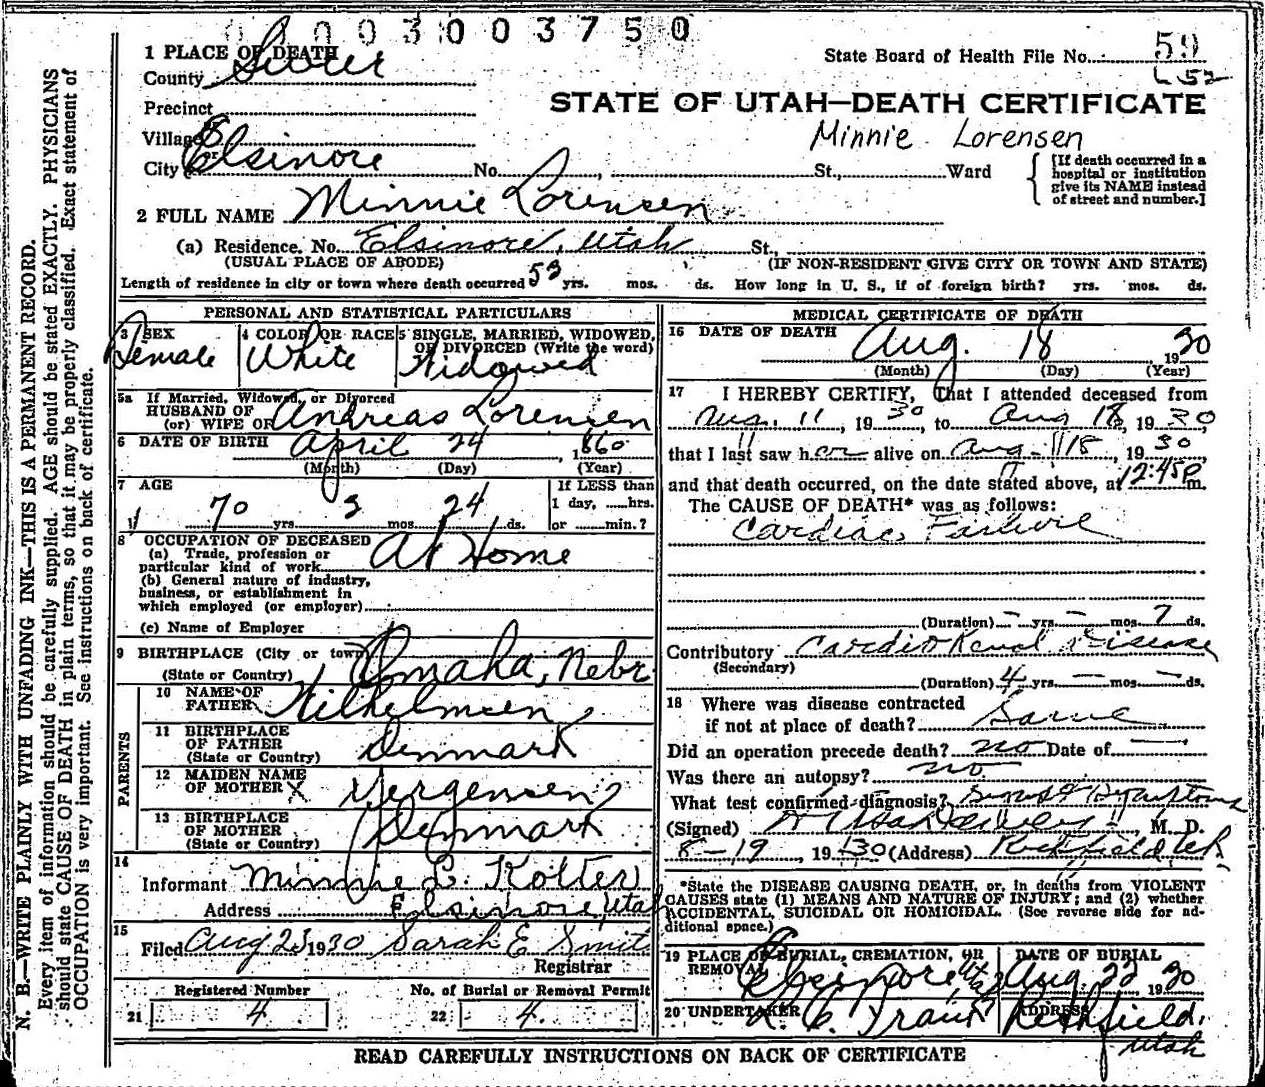 0003003750
1 PLACE OF DEATH
County Sevier
State Board of Health File No. 59
L 52
Precinct
STATE OF UTAH—DEATH CERTIFICATE
Minnie Lorensen
Village
or
City Elsinore No. , St., Ward
[If death occurred in a hospital or institution give its NAME instead of street and number.]
2 FULL NAME Minnie Lorensen
(a) Residence. No. Elsinore, Utah St.,
(USUAL PLACE OF ABODE) (IF NON-RESIDENT GIVE CITY OR TOWN AND STATE)
Length of residence in city or town where death occurred 53 yrs. mos. ds. How long in U. S., if of foreign birth? yrs. mos. ds.
PERSONAL AND STATISTICAL PARTICULARS
3 SEX
Female
4 COLOR OR RACE
White
5 SINGLE, MARRIED, WIDOWED,
OR DIVORCED (Write the word)
Widowed
5a If Married, Widowed, or Divorced
HUSBAND OF
(or) WIFE OF Andreas Lorensen
6 DATE OF BIRTH April 24, 1860
(Month) (Day) (Year)
7 AGE
70 yrs. 3 mos. 24 ds.
If LESS than
1 day, ......hrs.
or ......min.?
8 OCCUPATION OF DECEASED
(a) Trade, profession or
particular kind of work At Home
(b) General nature of industry,
business, or establishment in
which employed (or employer)
(c) Name of Employer
9 BIRTHPLACE (City or town)
(State or Country) Omaha, Nebr.
PARENTS
10 NAME OF
FATHER Wilhelmsen
11 BIRTHPLACE
OF FATHER
(State or Country) Denmark
12 MAIDEN NAME
OF MOTHER X Yergensen
13 BIRTHPLACE
OF MOTHER
(State or Country) Denmark
14
Informant Minnie L. Kotter
Address Elsinore, Utah
15
Filed Aug 23 1930 Sarah E Smit
Registrar
Registered Number
21 4
No. of Burial or Removal Permit
22 4.
MEDICAL CERTIFICATE OF DEATH
16 DATE OF DEATH
Aug. 18 1930
(Month) (Day) (Year)
17 I HEREBY CERTIFY, That I attended deceased from
Aug. 11, 1930, to Aug 18, 1930,
that I last saw her alive on Aug - 18, 1930
and that death occurred, on the date stated above, at 12:45 p m.
The CAUSE OF DEATH* was as follows:
Cardiac Failure
(Duration) – yrs. – mos. 7 ds.
Contributory Cardio Renal Disease
(Secondary)
(Duration) 4 yrs. – mos. – ds.
18 Where was disease contracted
if not at place of death? Same
Did an operation precede death? no Date of —
Was there an autopsy? no
What test confirmed diagnosis? Signs & Symptoms
(Signed) , M. D.
8-19, 1930 (Address) Richfield, Utah
*State the DISEASE CAUSING DEATH, or, in deaths from VIOLENT
CAUSES state (1) MEANS AND NATURE OF INJURY; and (2) whether
ACCIDENTAL, SUICIDAL OR HOMICIDAL. (See reverse side for ad-
ditional space.)
19 PLACE OF BURIAL, CREMATION, OR
REMOVAL
Elsinore, Ut
DATE OF BURIAL
Aug. 22 1930
20 UNDERTAKER
ADDRESS
Richfield,
Utah
READ CAREFULLY INSTRUCTIONS ON BACK OF CERTIFICATE
N. B.—WRITE PLAINLY WITH UNFADING INK—THIS IS A PERMANENT RECORD.
Every item of information should be carefully supplied. AGE should be stated EXACTLY. PHYSICIANS
should state CAUSE OF DEATH in plain terms, so that it may be properly classified. Exact statement of
OCCUPATION is very important. See instructions on back of certificate.